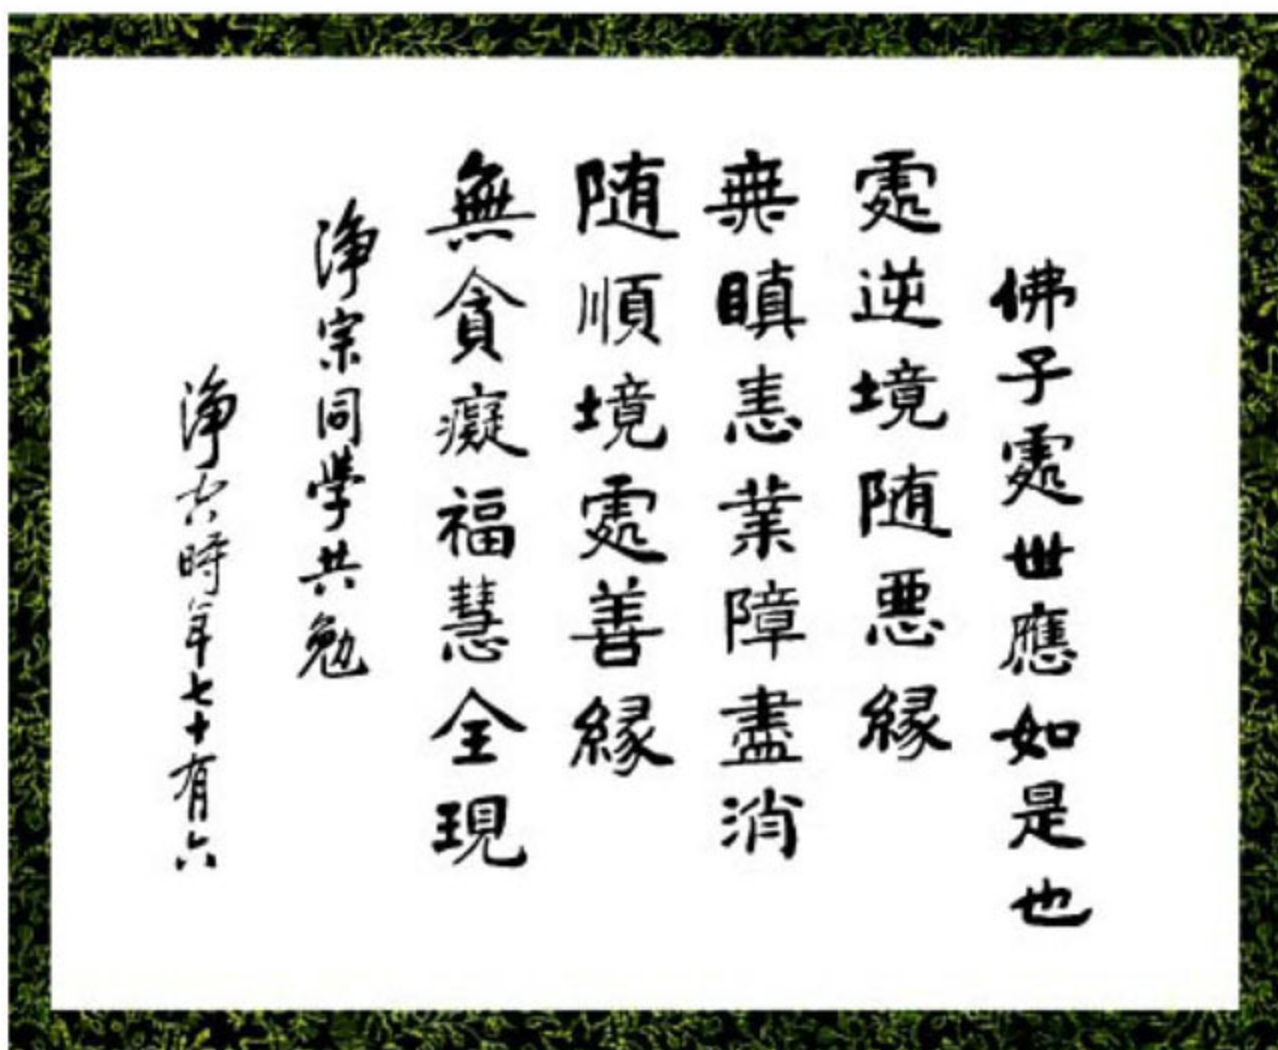 佛子處世應如是也
處逆境随惡緣
無瞋恚業障盡消
随順境處善緣
無貪癡福慧全現
淨宗同學共勉
淨空時年七十有六